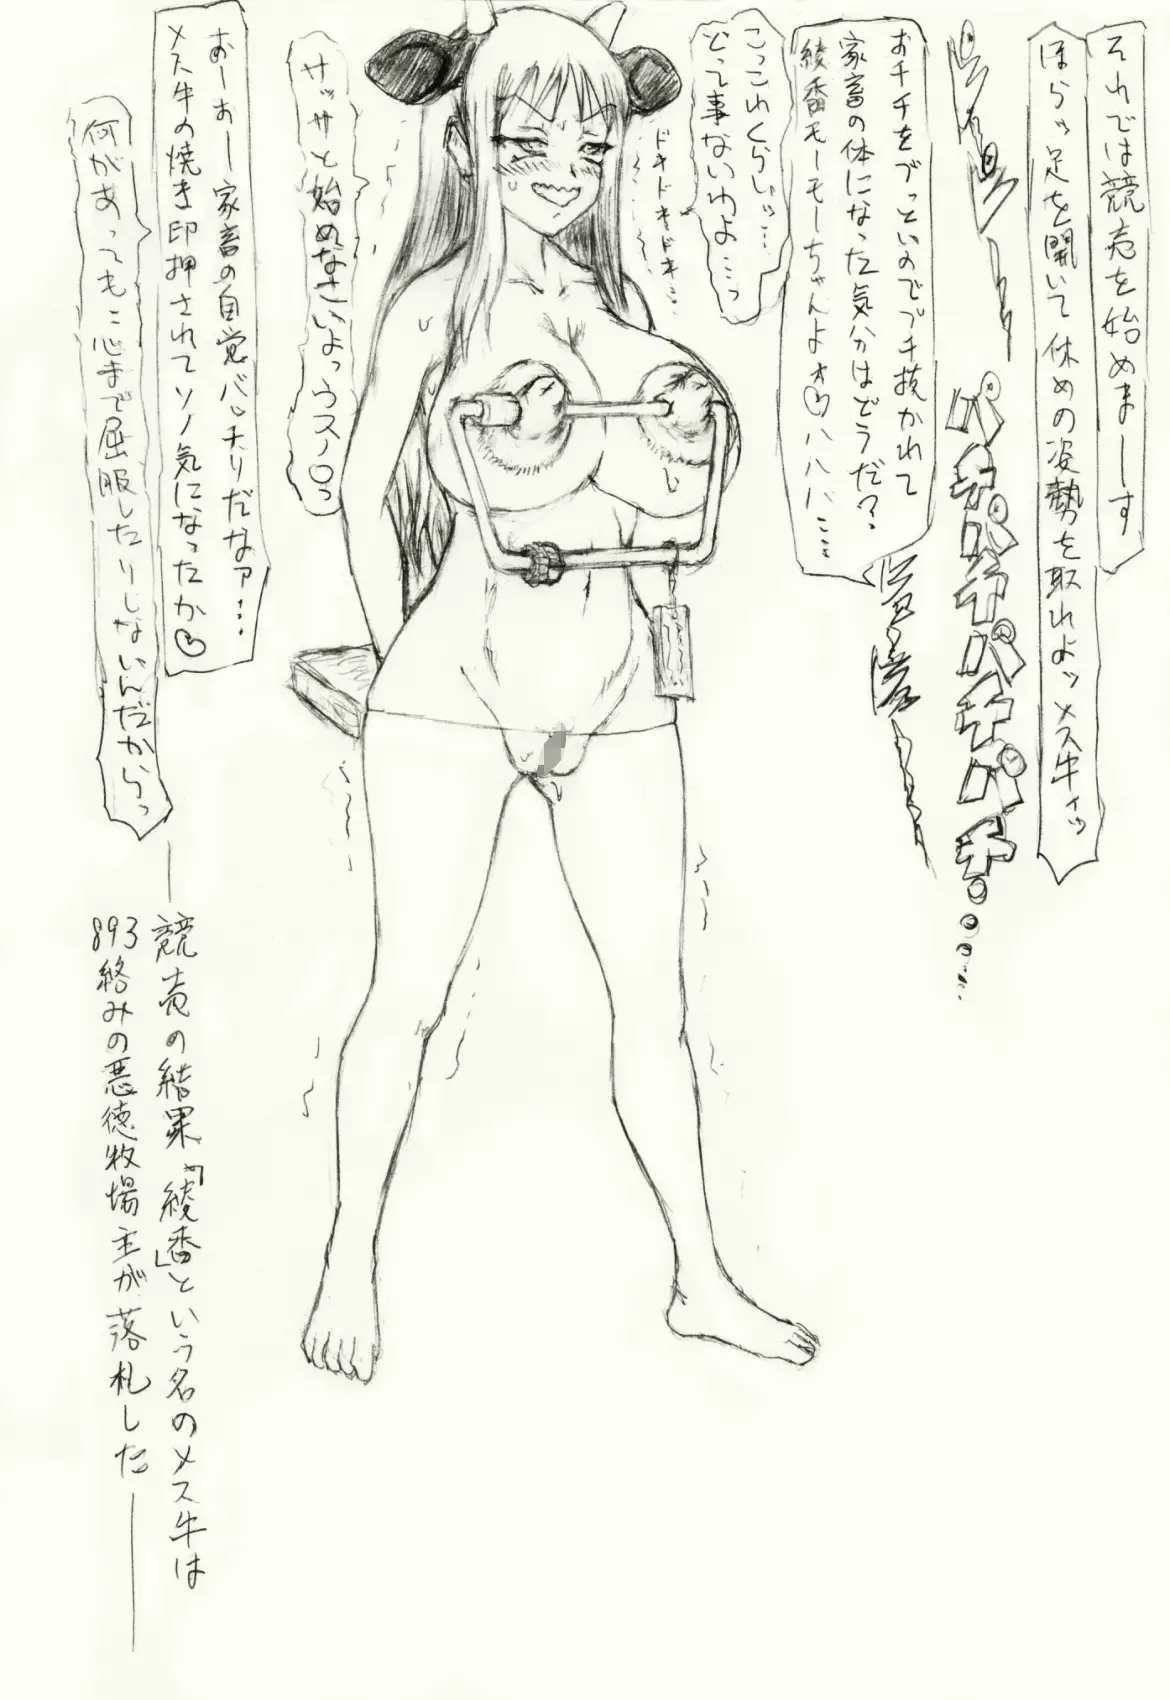 それでは競売を始めまーーす
ほらっ足を開いて休めの姿勢を取れよッメス牛ィッ
パチパチパチパチ。
おチチをブっといのでブチ抜かれて
家畜の体になった気分はどうだ?
綾香モーモーちゃんよォ♡ハハハ…
こっこれくらいッ…
どって事ないわよ…っ
ドキドキドキ…
サッサと始めなさいよっウスノロっ
おーおー家畜の自覚バッチリだなァ…
メス牛の焼き印押されてソノ気になったか♡
何があっても心まで屈服したりしないんだからっ
――競売の結果「綾香」という名のメス牛は
893絡みの悪徳牧場主が落札した――